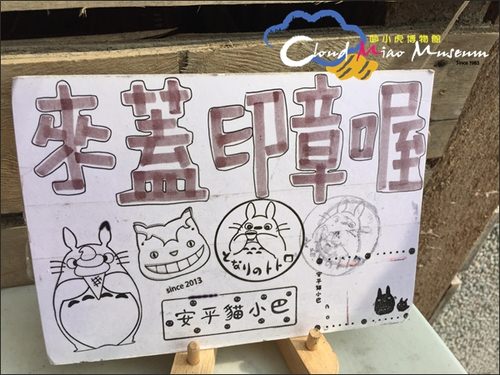 喵小虎博物館
Cloud Miao Museum
Since 1983
來蓋印章喔
となりのトトロ
since 2013
安平貓小巴
安平貓小巴
no